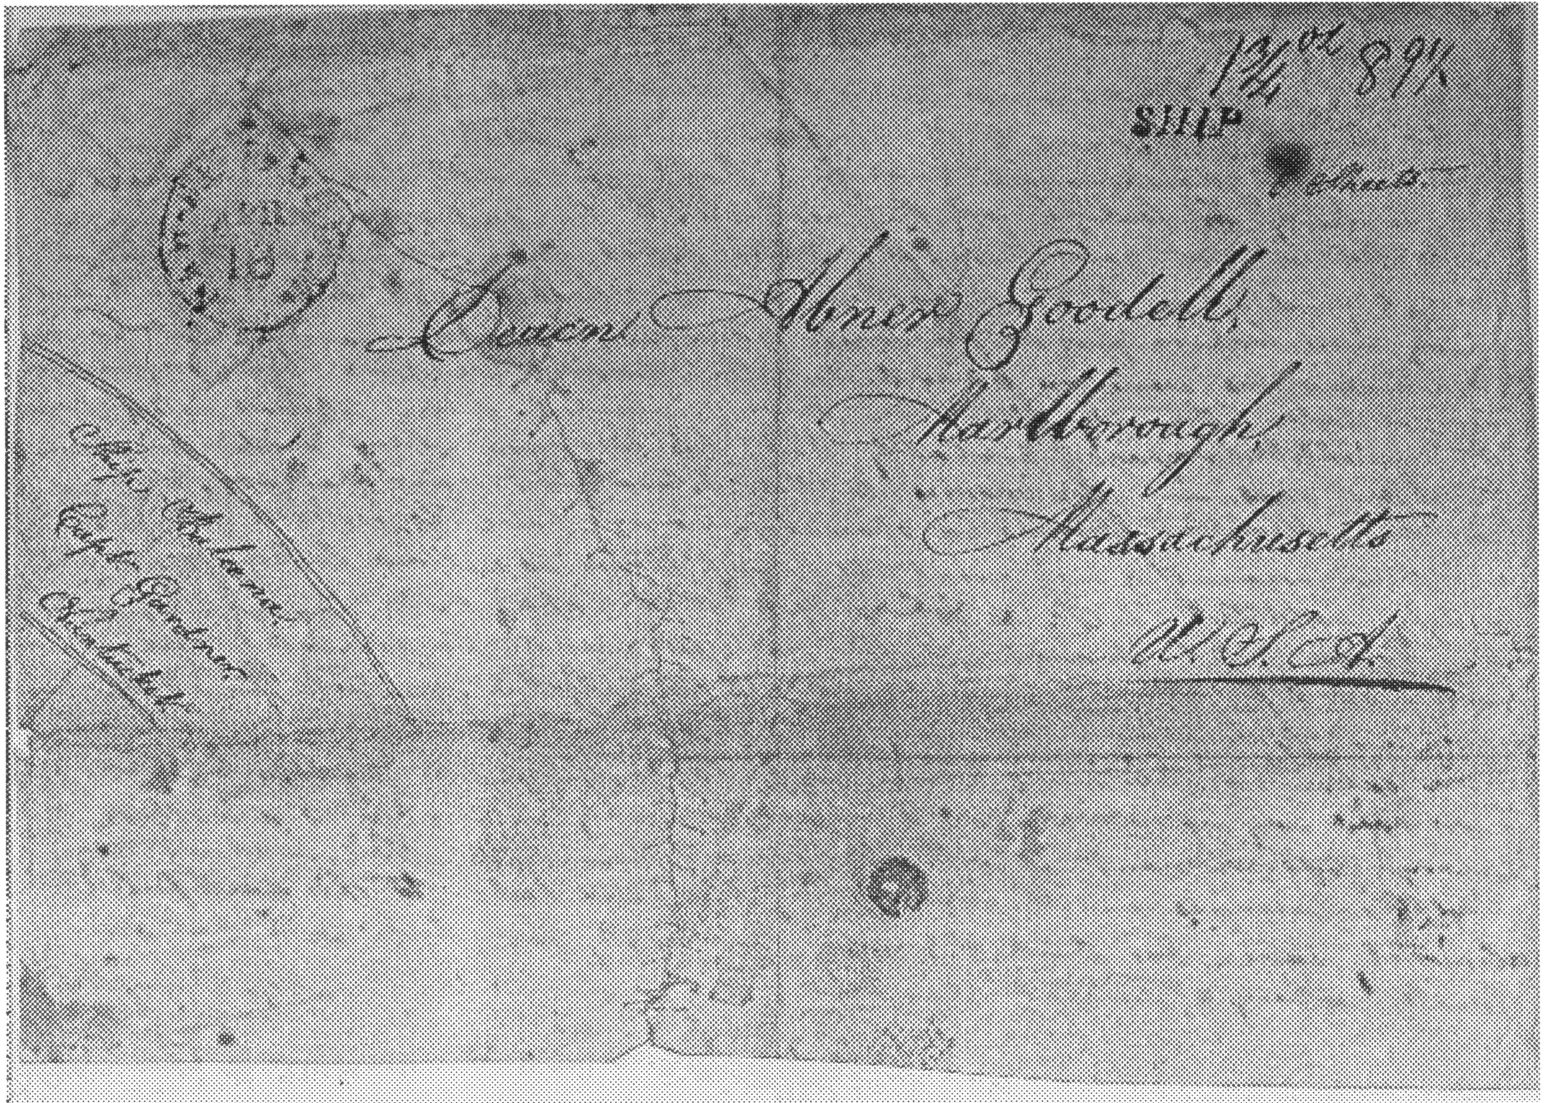 1¾ oz 89½
SHIP
Sheets.
18
Deacon Abner Goodell,
Marlborough,
Massachusetts
U. S. A.
Ship
Capt. Gardner.
Nantucket